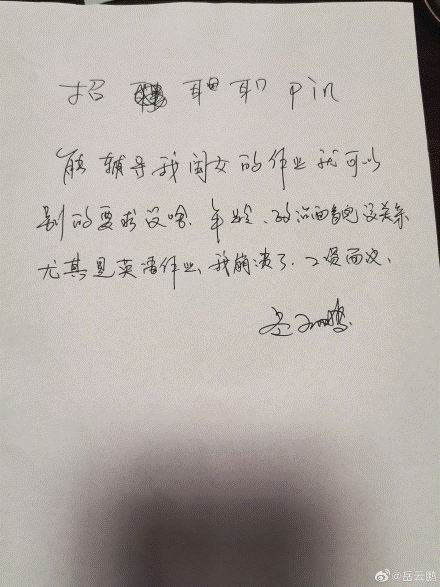 招 耳 职 pin
能辅导我闺女的作业就可以
别的要求没啥.年龄、政治面貌没关系
尤其是英语作业,我崩溃了.工资面议.
岳云鹏
@岳云鹏